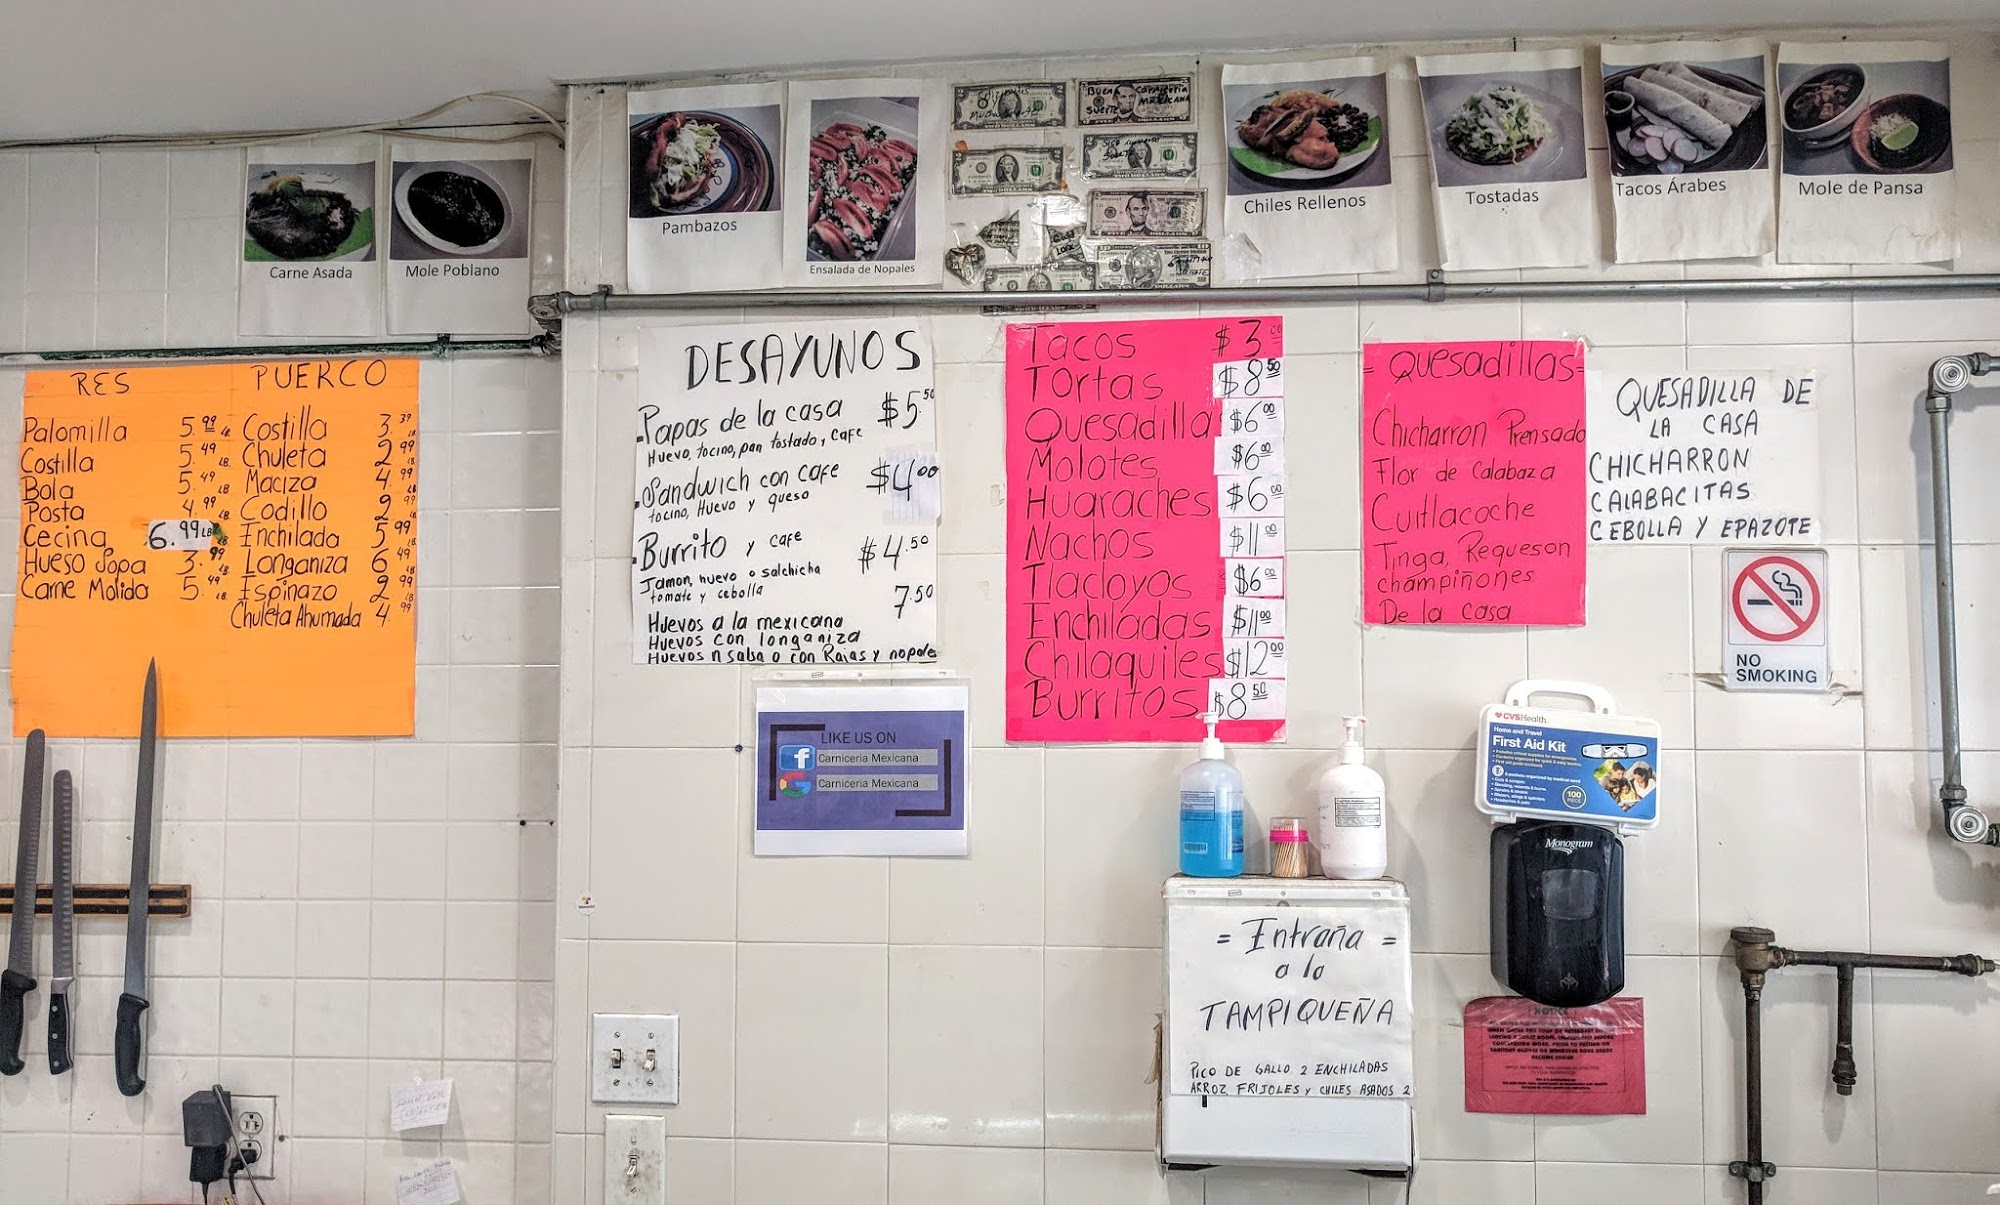 Carne Asada
Mole Poblano
Pambazos
Ensalada de Nopales
BUENA CARNICERIA
SUERTE MEXICANA
Chiles Rellenos
Tostadas
Tacos Árabes
Mole de Pansa
RES
Palomilla 5.99 LB
Costilla 5.49 LB
Bola 5.49 LB
Posta 4.99 LB
Cecina 6.99 LB
Hueso Sopa 3.99 LB
Carne Molida 5.49 LB
PUERCO
Costilla 3.39 LB
Chuleta 2.99 LB
Maciza 4.99 LB
Codillo 2.99
Enchilada 5.99 LB
Longaniza 6.49 LB
Espinazo 2.99 LB
Chuleta Ahumada 4.99
DESAYUNOS
Papas de la casa $5.50
Huevo, tocino, pan tostado, y cafe
Sandwich con cafe $4.00
tocino, Huevo y queso
Burrito y cafe $4.50
Jamon, huevo o salchicha
tomate y cebolla 7.50
Huevos a la mexicana
Huevos con longaniza
Huevos n salsa o con Rajas y nopale
LIKE US ON
Carniceria Mexicana
Carniceria Mexicana
Tacos $3.00
Tortas $8.50
Quesadilla $6.00
Molotes $6.00
Huaraches $6.00
Nachos $11.00
Tlacloyos $6.00
Enchiladas $11.00
Chilaquiles $12.00
Burritos $8.50
= Quesadillas =
Chicharron Prensado
Flor de Calabaza
Cuitlacoche
Tinga, Requeson
champiñones
De la casa
QUESADILLA DE
LA CASA
CHICHARRON
CALABACITAS
CEBOLLA Y EPAZOTE
NO
SMOKING
CVSHealth
Home and Travel
First Aid Kit
100
PIECE
Monogram
= Entraña =
a la
TAMPIQUEÑA
PICO DE GALLO 2 ENCHILADAS
ARROZ, FRIJOLES Y CHILES ASADOS 2
NOTICE